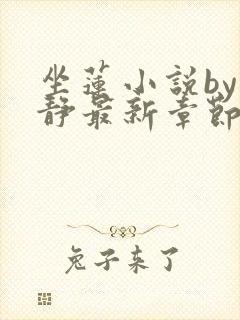 坐蓮小說by
靜最新章節
兔子来了